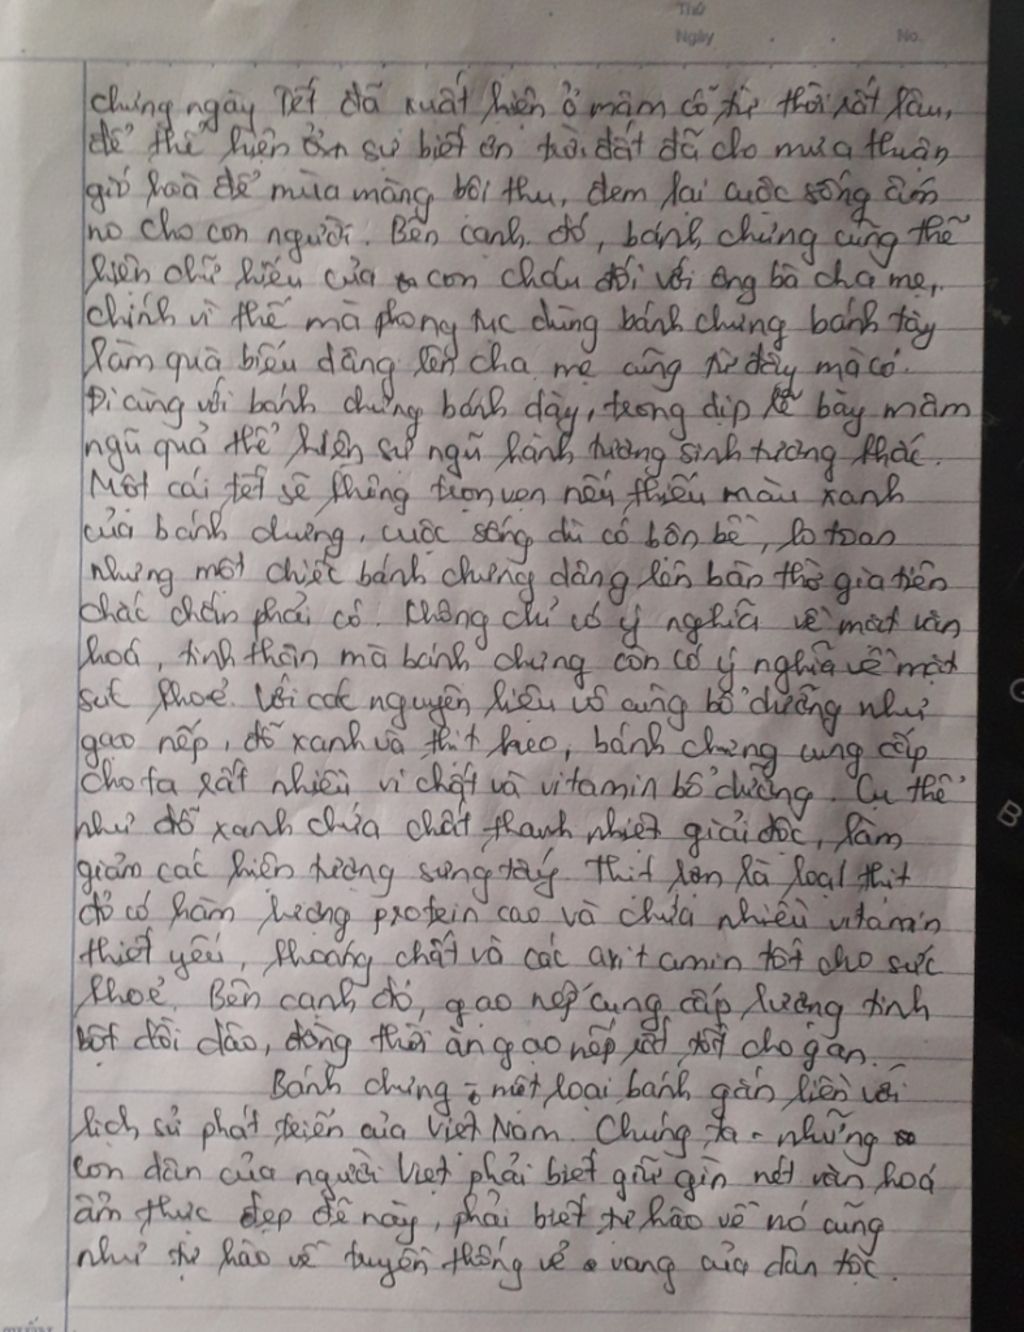 Thứ
Ngày No.
chưng ngày Tết đã xuất hiện ở mâm cỗ từ thời rất lâu,
để thể hiện ơn sự biết ơn trời đất đã cho mưa thuận
gió hoà để mùa màng bội thu, đem lại cuộc sống ấm
no cho con người. Bên cạnh đó, bánh chưng cũng thể
hiện chữ hiếu của con cháu đối với ông bà cha mẹ,
chính vì thế mà phong tục dùng bánh chưng bánh tày
làm quà biếu dâng lên cha mẹ cũng từ đây mà có.
Đi cùng với bánh chưng bánh dày, trong dịp lễ bày mâm
ngũ quả thể hiện sự ngũ hành tương sinh tương khác.
Một cái tết sẽ không trọn vẹn nếu thiếu màu xanh
của bánh chưng, cuộc sống dù có bôn bề, lo toan
nhưng một chiếc bánh chưng dâng lên bàn thờ gia tiên
chắc chắn phải có. Không chỉ có ý nghĩa về mặt văn
hoá, tinh thần mà bánh chưng còn có ý nghĩa về mặt
sức khoẻ. Với các nguyên liệu vô cùng bổ dưỡng như
gạo nếp, đỗ xanh và thịt heo, bánh chưng cung cấp
cho ta rất nhiều vi chất và vitamin bổ dưỡng. Cụ thể
như đỗ xanh chứa chất thanh nhiệt giải độc, làm
giảm các hiện tượng sưng tấy. Thịt lợn là loại thịt
đỏ có hàm lượng protein cao và chứa nhiều vitamin
thiết yếu, khoáng chất và các avitamin tốt cho sức
khoẻ. Bên cạnh đó, gạo nếp cung cấp lượng tinh
bột dồi dào, đồng thời ăn gạo nếp rất tốt cho gan.
Bánh chưng, một loại bánh gắn liền với
lịch sử phát triển của Việt Nam. Chúng ta - những
con dân của người Việt phải biết giữ gìn nét văn hoá
ẩm thực đẹp đẽ này, phải biết tự hào về nó cũng
như tự hào về truyền thống vẻ vang của dân tộc.